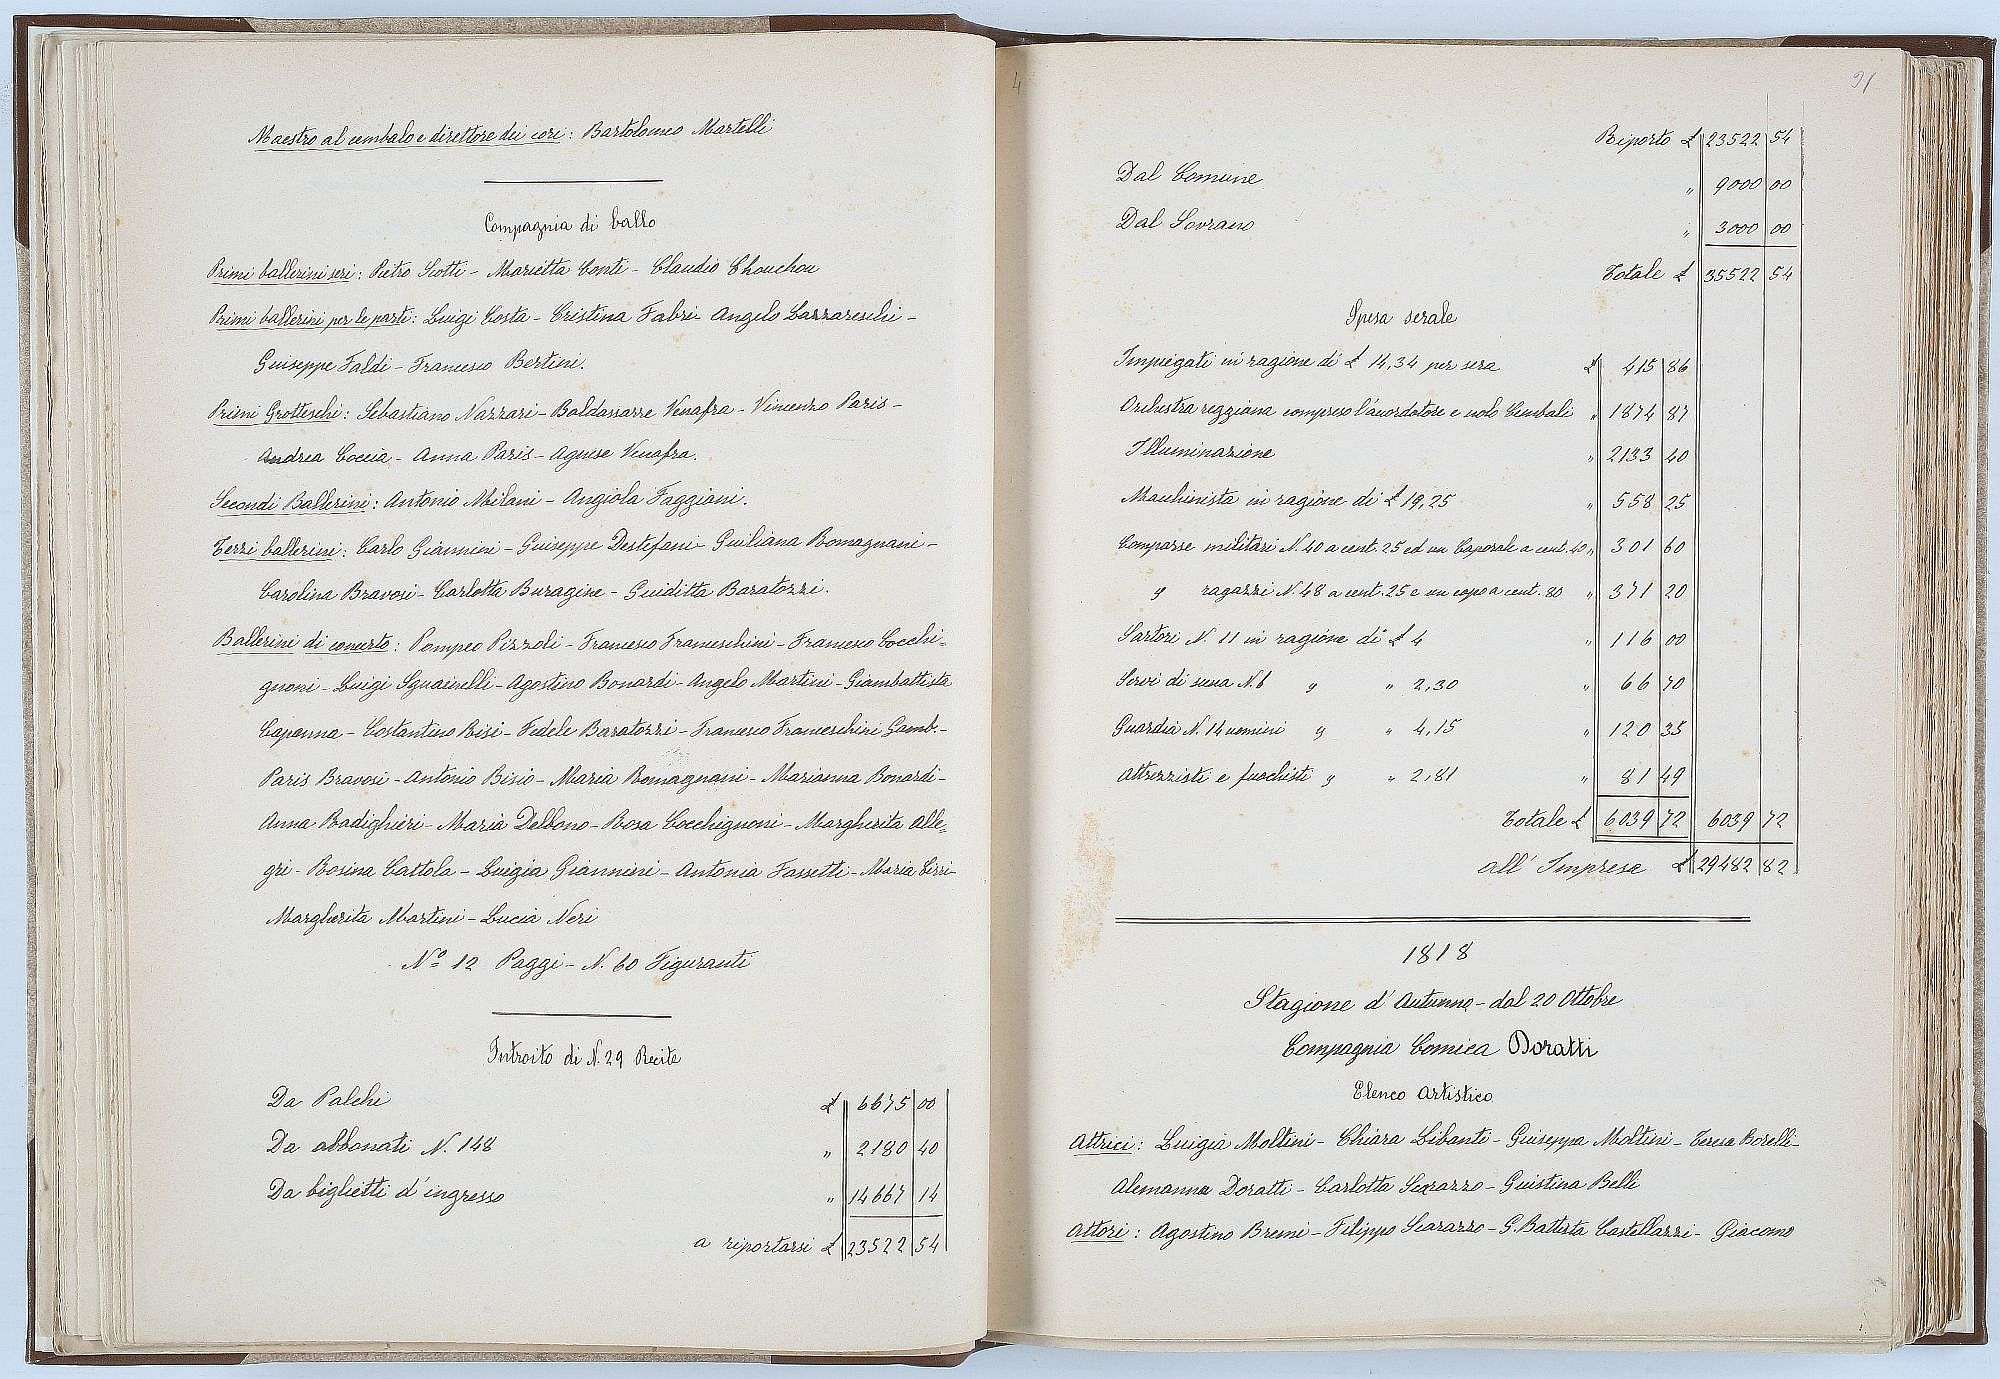 Maestro al cembalo e direttore dei cori: Bartolomeo Martelli
Compagnia di ballo
Primi ballerini seri: Pietro Scotti - Marietta Conti - Claudio Chouchou
Primi ballerini per le parti: Luigi Costa - Cristina Fabri - Angelo Lazzareschi -
Guiseppe Faldi - Francesco Bertini.
Primi Grotteschi: Sebastiano Nazzari - Baldassarre Venafra - Vincenzo Paris -
Andrea Coccia - Anna Paris - Agnese Venafra.
Secondi Ballerini: Antonio Milani - Angiola Faggiani.
Terzi ballerini: Carlo Giannini - Guiseppe Destefani - Guiliana Romagnani -
Carolina Bravosi - Carlotta Buragine - Guiditta Baratozzi.
Ballerini di concerto: Pompeo Pizzoli - Francesco Franceschini - Francesco Cocchi-
gnoni - Luigi Sguainelli - Agostino Bonardi - Angelo Martini - Giambattista
Capanna - Costantino Risi - Fedele Baratozzi - Francesco Franceschini Gamb. -
Paris Bravosi - Antonio Bisio - Maria Romagnani - Marianna Bonardi -
Anna Badighieri - Maria Delbono - Rosa Cocchignoni - Margherita Alle-
gri - Rosina Cattola - Luigia Giannini - Antonia Fassetti - Maria Cirri -
Margherita Martini - Lucia Neri
No 12 Paggi - N. 60 Figuranti
Introito di N. 29 Recite
Da Palchi £ 6675 00
Da abbonati N. 148 " 2180 40
Da biglietti d'ingresso " 14667 14
a riportarsi £ 23522 54
4
91
Riporto £ 23522 54
Dal Comune " 9000 00
Dal Sovrano " 3000 00
Totale £ 35522 54
Spesa serale
Impiegati in ragione di £ 14,34 per sera £ 415 86
Orchestra reggiana compreso l'accordatore e nolo Cembali " 1874 87
Illuminazione " 2133 40
Macchinista in ragione di £ 19,25 " 558 25
Comparse militari N. 40 a cent. 25 ed un Caporale a cent. 40 " 301 60
" ragazzi N. 48 a cent. 25 e un capo a cent. 80 " 371 20
Sartori N. 11 in ragione di £ 4 " 116 00
Servi di scena N. 6 " " 2,30 " 66 70
Guardia N. 14 uomini " " 4,15 " 120 35
Attrezzisti e fuochisti " " 2,81 " 81 49
Totale £ 6039 72 6039 72
all' Impresa £ 29482 82
1818
Stagione d' Autunno - dal 20 Ottobre
Compagnia Comica Doratti
Elenco Artistico
Attrici: Luigia Moltini - Chiara Libanti - Guiseppa Moltini - Teresa Borelli -
Alemanna Doratti - Carlotta Scarazzo - Guistina Belli
Attori: Agostino Bremi - Filippo Scarazzo - G. Battista Castellazzi - Giacomo